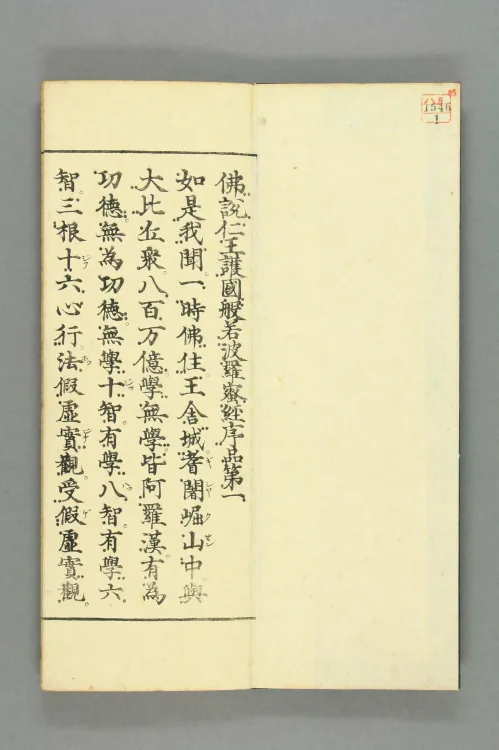 佛説仁王護國般若波羅蜜經序品第一
如是我聞一時佛住王舍城耆闍崛山中與
大比丘衆八百万億學無學皆阿羅漢有為
功德無為功德無學十智有學八智有學六
智三根十六心行法假虚實觀受假虚實觀